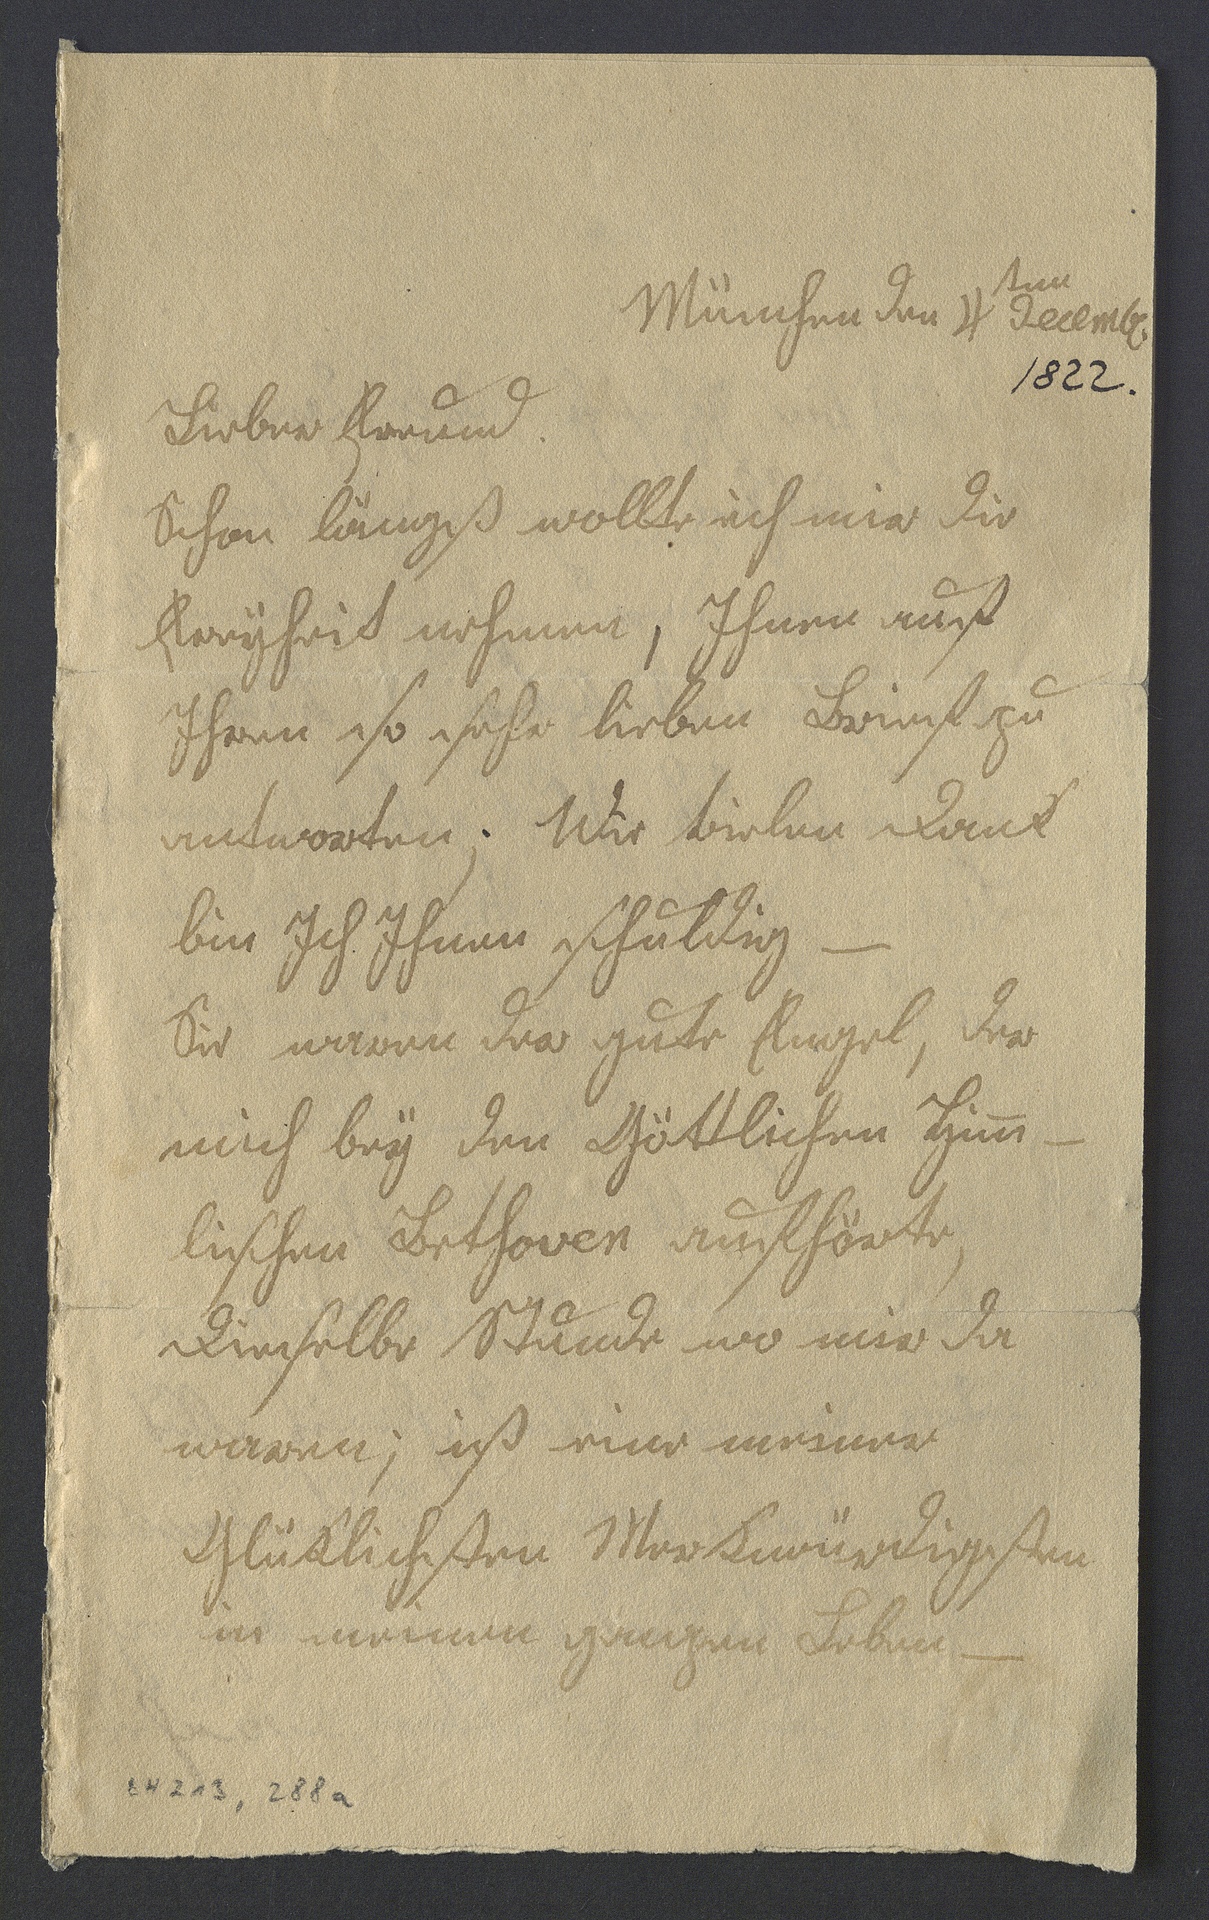 München den 4 ten Decemb.
1822.
Lieber Freund.
Schon längst wollte ich mir die
Freyheit nehmen, Ihnen auf
Ihren so sehr lieben Brief zu
antworten; Wie vielen Dank
bin Ich Ihnen schuldig —
Sie waren der gute Engel, der
mich bey den Göttlichen Him̅-
lischen Bethoven aufführte,
Dieselbe Stunde wo wir da
waren; ist eine meiner
Glüklichsten Merkwürdigsten
in meinen ganzen Leben —
213, 288a